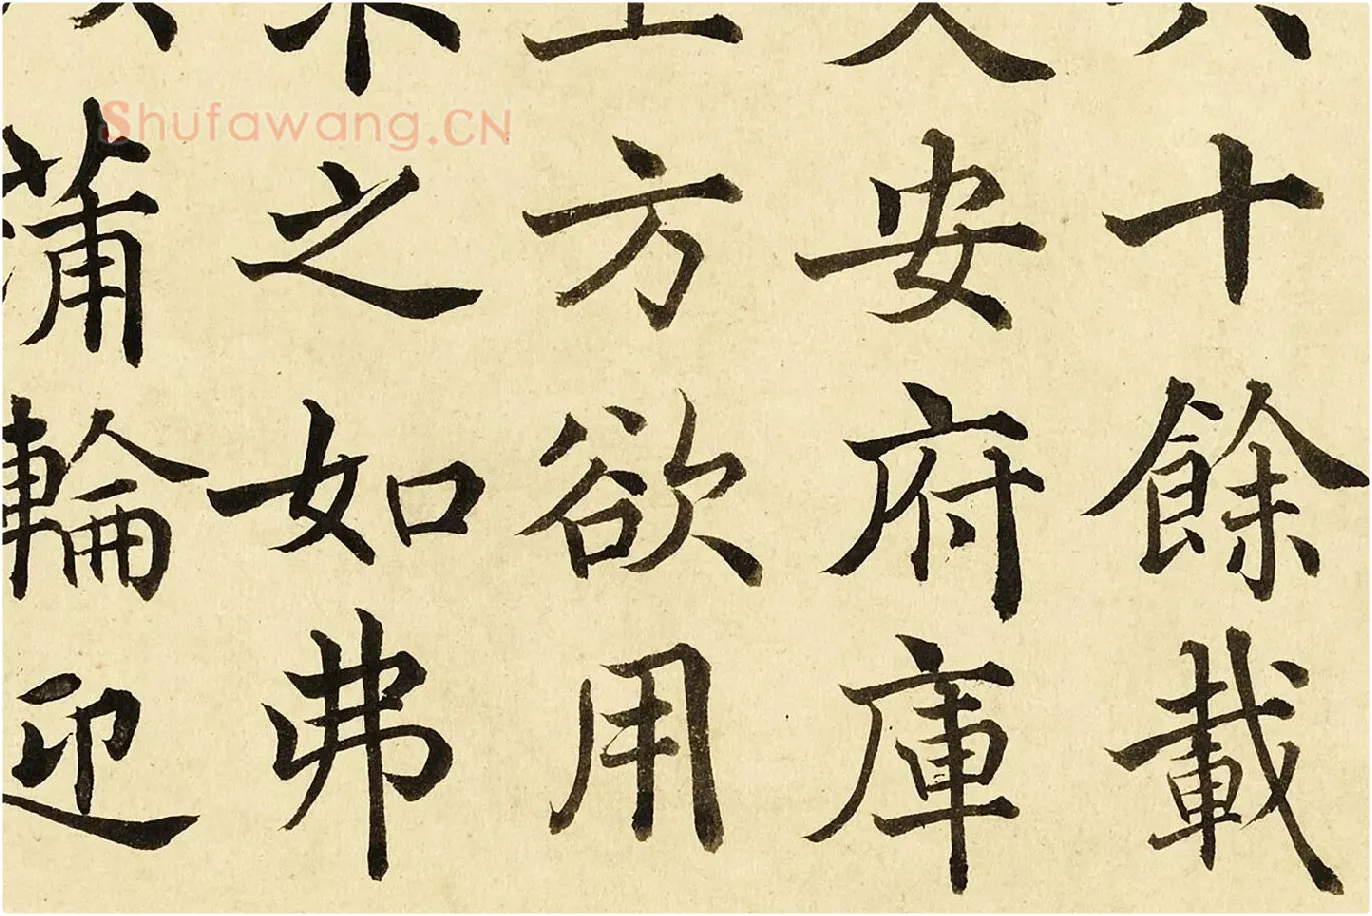 十餘載
安府庫
方欲用
之如弗
蒲輪迎
Shufawang.CN